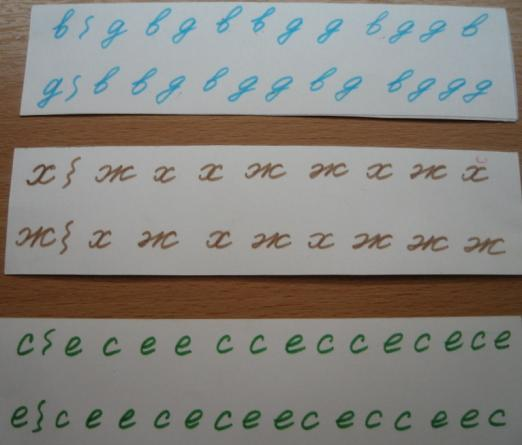 в} д в д в в д д в д д в
д} в в д в д д в д в д д д
х} ж х х ж ж х ж х
ж} х ж х ж х ж ж ж
с} е с е е с с е с с е с е с е
е} с е е с е с е е с е с с е е с